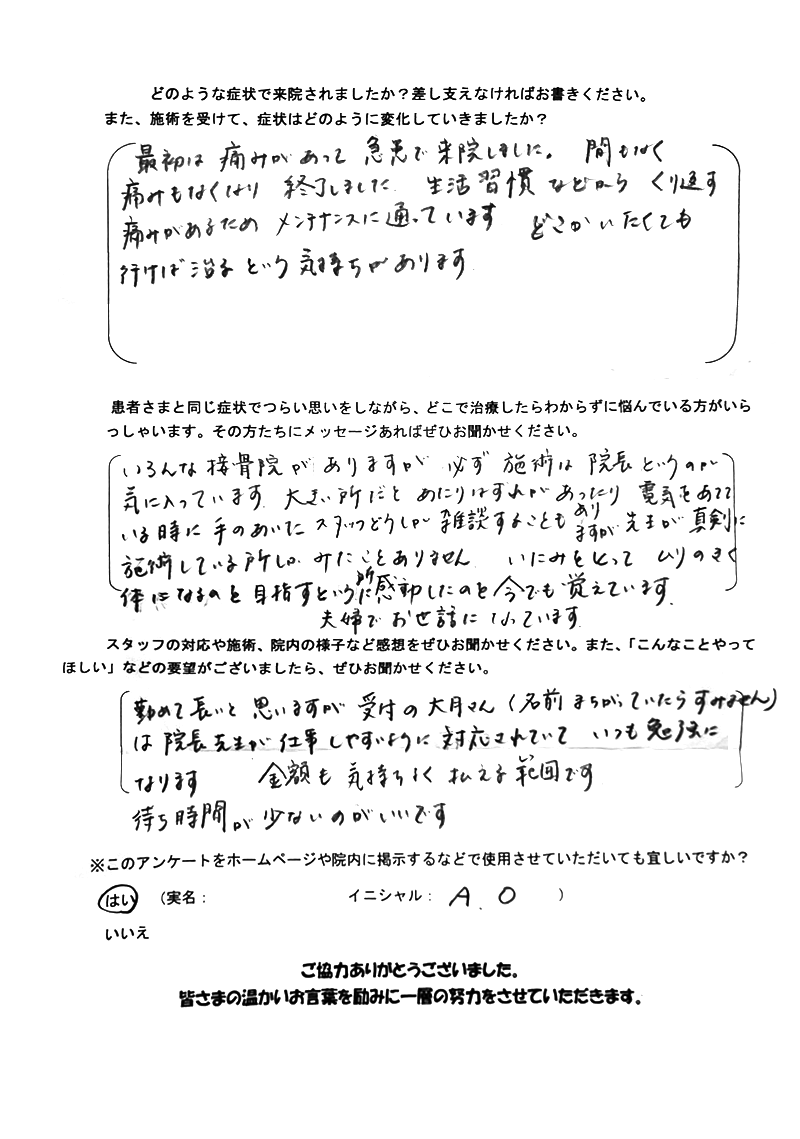 どのような症状で来院されましたか？差し支えなければお書きください。
また、施術を受けて、症状はどのように変化していきましたか？
最初は 痛みがあって 急患で 来院しました。 間もなく
痛みもなくなり 終了しました 生活習慣 などから くり返す
痛みがあるため メンテナンスに 通っています どこかいたくても
行けば治る という 気持ちがあります
患者さまと同じ症状でつらい思いをしながら、どこで治療したらわからずに悩んでいる方がいら
っしゃいます。その方たちにメッセージあればぜひお聞かせください。
いろんな 接骨院が ありますが 必ず 施術は 院長というのが
気に入っています 大きい所だと あたりはずれが あったり 電気をあてて
いる時に 手のあいた スタッフどうしが 雑談することも ありますが 先生が 真剣に
施術している所しか みたことありません いたみをとって よりのきく
体になるのを 目指すという所に 感動したのを 今でも 覚えています
夫婦で お世話に なっています
スタッフの対応や施術、院内の様子など感想をぜひお聞かせください。また、「こんなことやって
ほしい」などの要望がございましたら、ぜひお聞かせください。
勤めて長いと 思いますが 受付の 大月さん（名前 まちがっていたら すみません）
は 院長先生が 仕事しやすいように 対応されていて いつも 勉強に
なります 金額も 気持ちよく 払える 範囲です
待ち時間が 少ないのがいいです
※このアンケートをホームページや院内に掲示するなどで使用させていただいても宜しいですか？
はい （実名： イニシャル： A.O ）
いいえ
ご協力ありがとうございました。
皆さまの温かいお言葉を励みに一層の努力をさせていただきます。